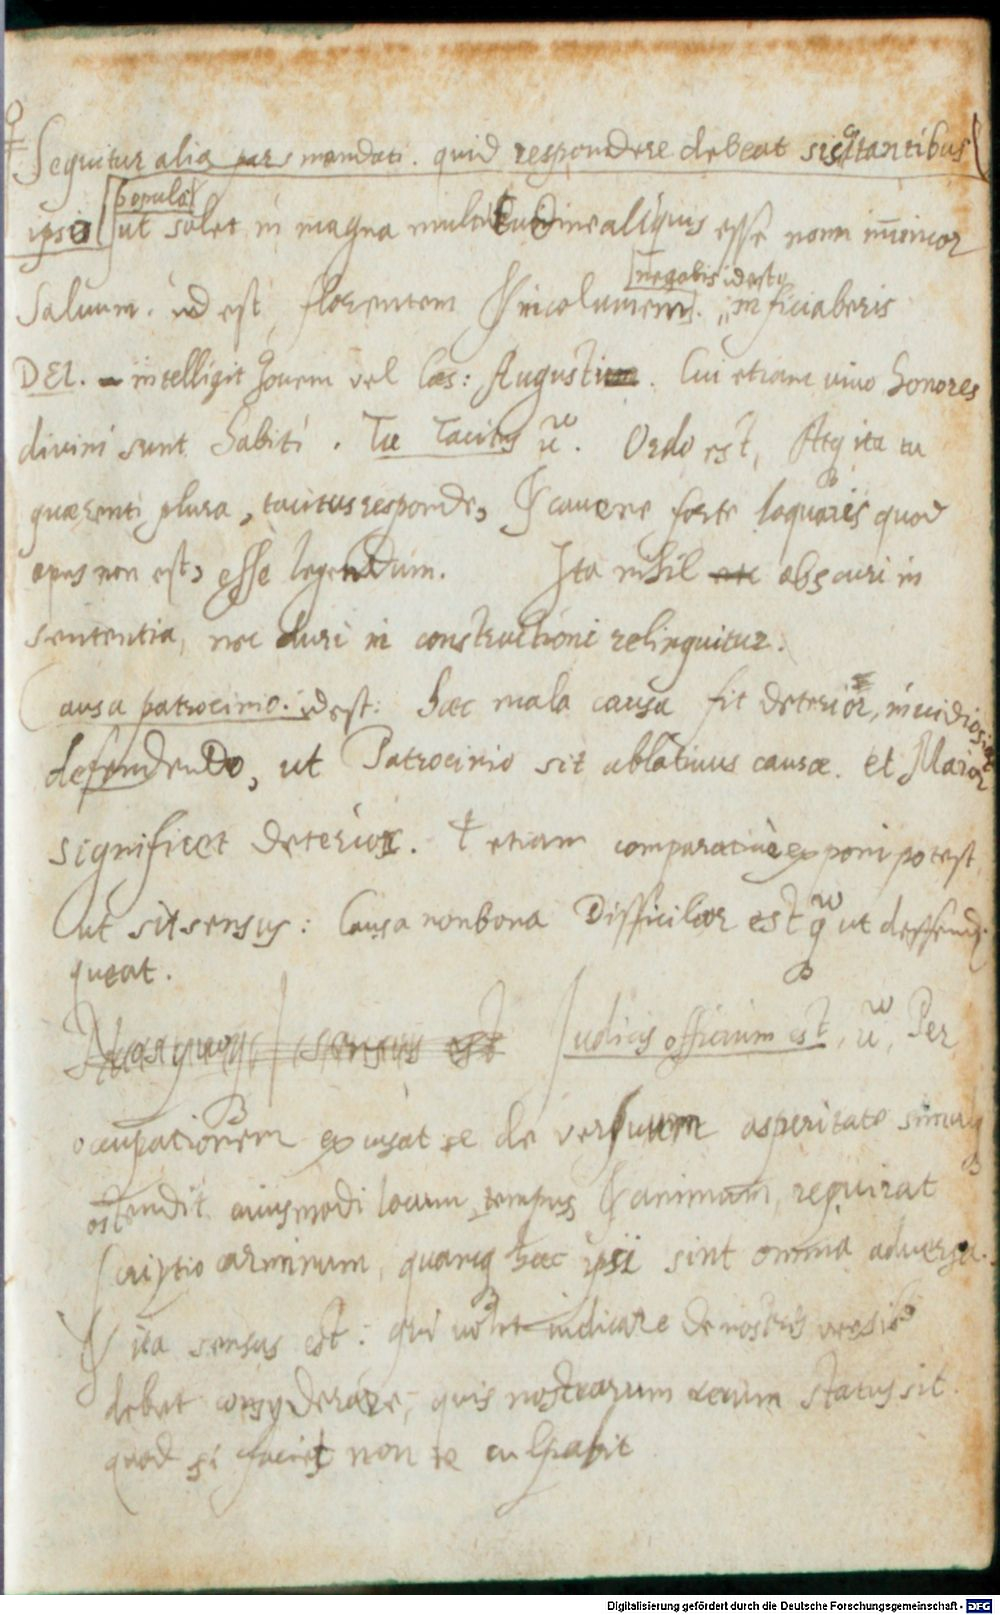 Sequitur alia pars mandati. quid respondere debeat sisqitantibus
[populo]
ipsis ut solet in magna multitudine aliquis esse nomi immemor
[negabis id est]
Saluum. id est, florentem & incolumem. inficiaberis
DEI. intelligit Jouem vel Cæs: Augustum. Cui etiam viuo honores
diuini sunt habiti. Tu Tacitus. Ordo est, Atq ita tu
quærenti plura, tacitus responde, & cauene forte loquaris quod
opus non est, esse legendum. Ita nihil obscuri in
sententia, nec duri in constructioni relinquitur.
Causa patrocinio. id est: hæc mala causa fit deterior, inuidiosior
defendendo, ut Patrocinio sit ablatiuus causæ. et Maior
significet deterior. etiam comparatiuè exponi potest
ut sit sensus: Causa non bona Difficilior est q ut deffendi
queat.
sensus est Iudicis officium est, Per
occupationem excusat se de versuum asperitate simulq
ostendit cuiusmodi locum, tempus & animum, requirat
scriptio carminum, quamq hæc ipsi sint omnia aduersa.
& ita sensus est: qui uolet iudicare de nostris versib
debet consyderare, quis nostrarum rerum status sit.
quod si faciet non se culpabit
Digitalisierung gefördert durch die Deutsche Forschungsgemeinschaft - DFG